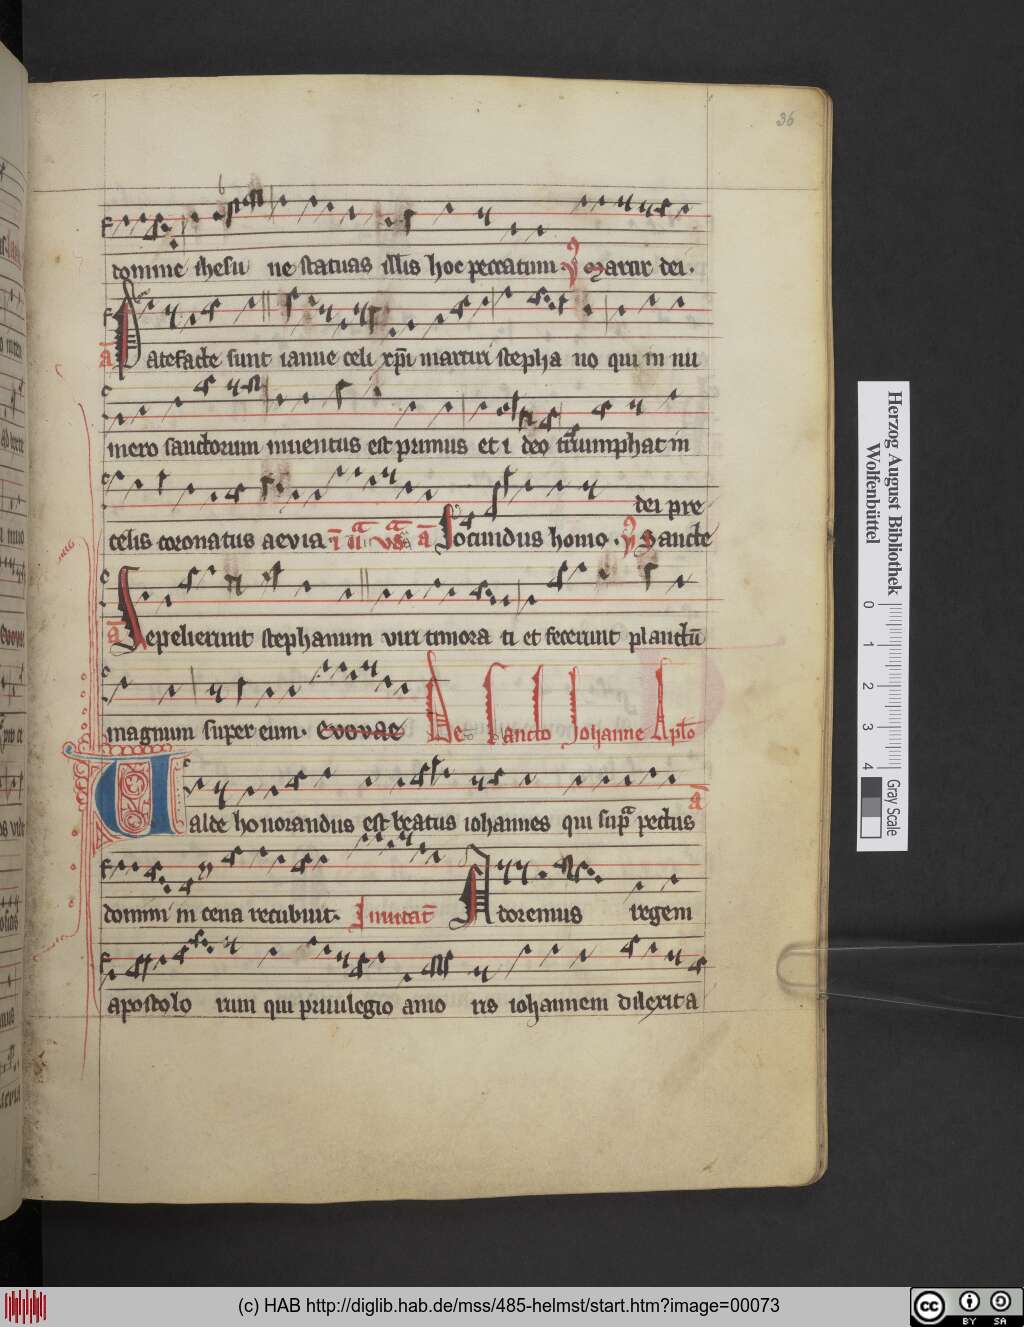 36
domine ihesu ne statuas illis hoc peccatum ℣ Martir dei.
ā Patefacte sunt ianue celi xp̄i martiri stepha no qui in nu
mero sanctorum inuentus est primus et i deo triumphat in
dei pre
celis coronatus aevia. ā Jocundus homo. ℣ Sancte
ā Sepelierunt stephanum viri timora ti et fecerunt planctū
magnum super eum. evovae De Sancto Johanne Apl̄o
ā
Valde honorandus est beatus iohannes qui supra pectus
domini in cena recubuit. Inuitat̄ Adoremus regem
apostolo rum qui priuilegio amo ris iohannem dilexit a
Herzog August Bibliothek
Wolfenbüttel
0 1 2 3 4
Gray Scale
(c) HAB http://diglib.hab.de/mss/485-helmst/start.htm?image=00073
cc BY SA